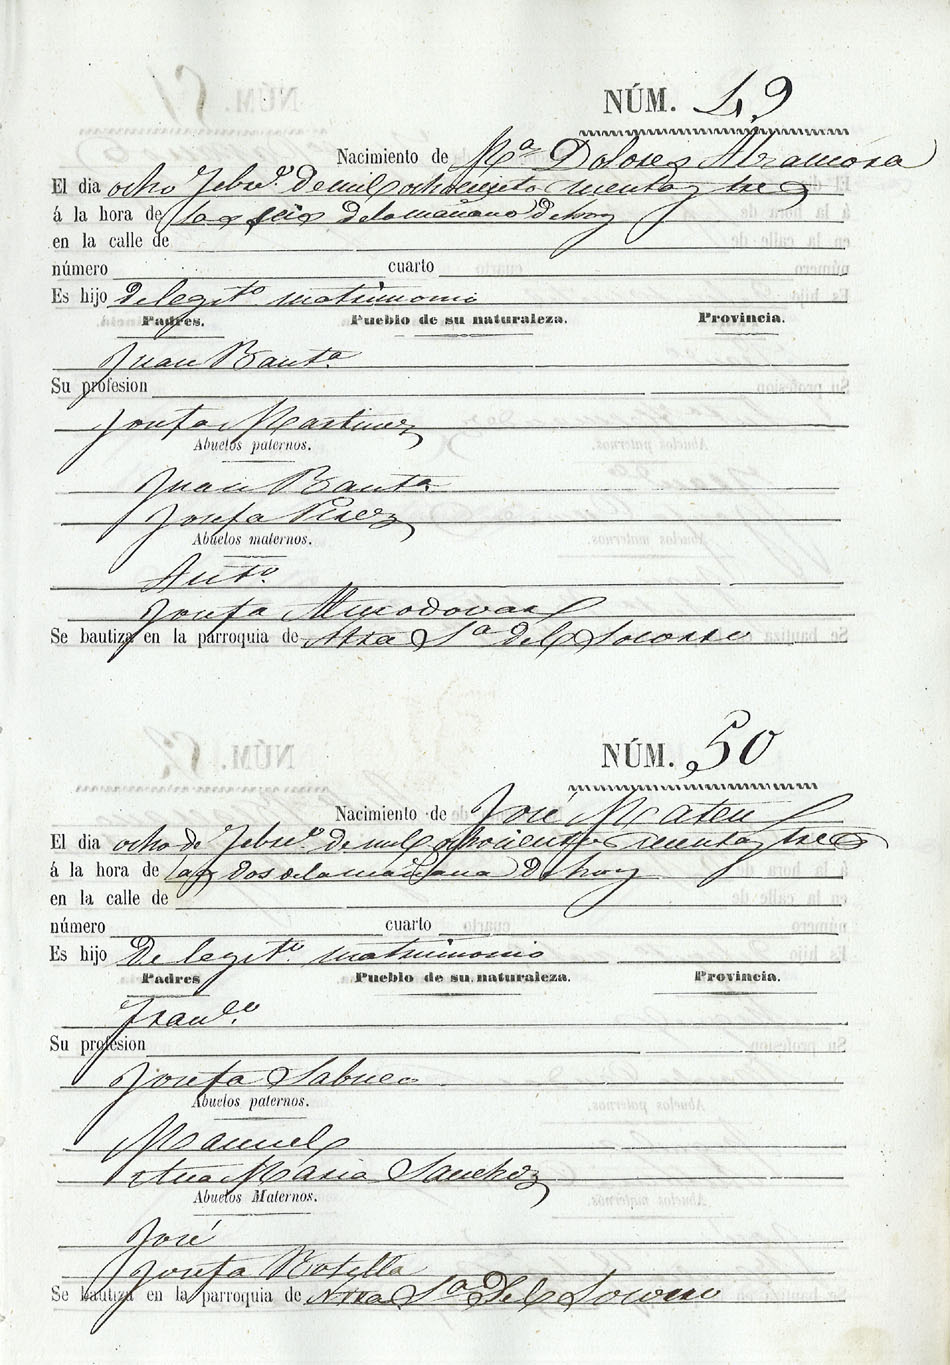 NÚM. 49
Nacimiento de Mª Dolores
El dia ocho Febrº. de mil ochociento y tres
á la hora de las seis de la mañana de hoy
en la calle de
número cuarto
Es hijo de legitº. matrimonio
Padres. Pueblo de su naturaleza. Provincia.
Juan Bautª
Su profesion
Josefa Martinez
Abuelos paternos.
Juan Bautª
Josefa Perez
Abuelos maternos.
Antº.
Josefa Almodovar
Se bautiza en la parroquia de Ntra Sª del Socorro
NÚM. 50
Nacimiento de José Mateu
El dia ocho de Febrº. de mil ochocientos y tres
á la hora de las dos de la mañana de hoy
en la calle de
número cuarto
Es hijo de legitº. matrimonio
Padres Pueblo de su naturaleza. Provincia.
Francº.
Su profesion
Josefa Sabuco
Abuelos paternos.
Manuel
Ana Maria Sanchez
Abuelos Maternos.
José
Josefa Botella
Se bautiza en la parroquia de Ntra Sª del Socorro